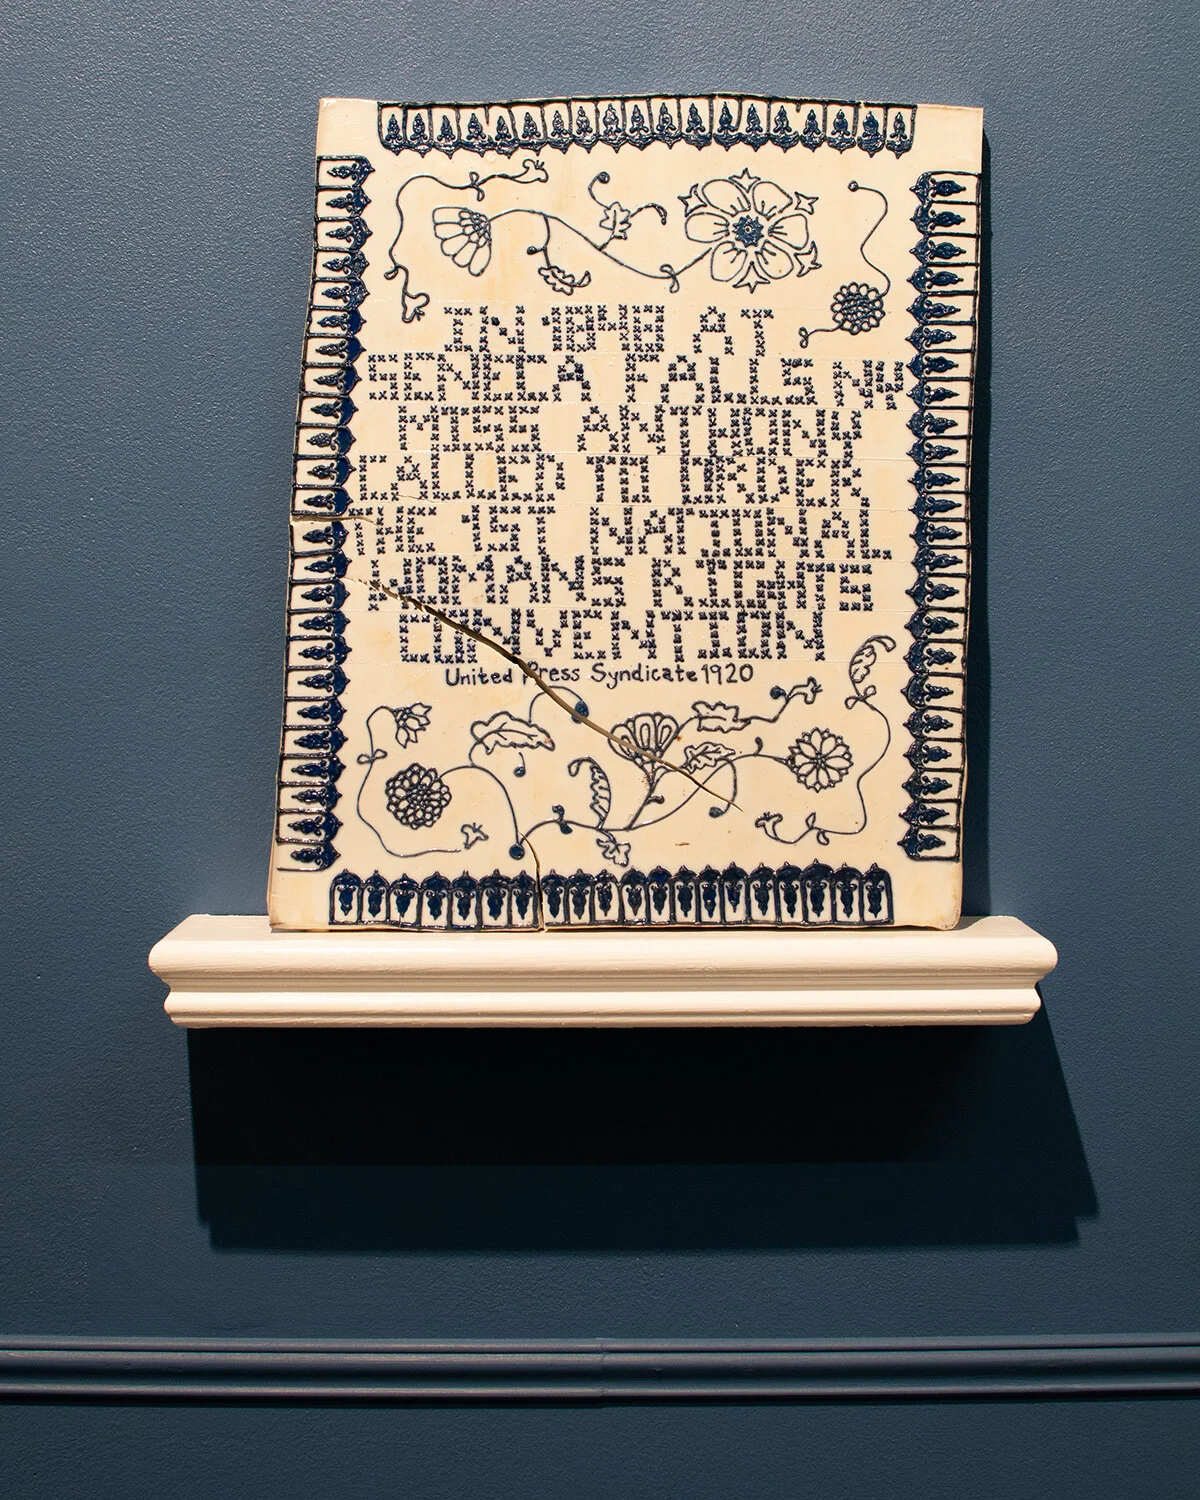 IN 1848 AT
SENECA FALLS NY
MISS ANTHONY
CALLED TO ORDER
THE 1ST NATIONAL
WOMANS RIGHTS
CONVENTION
United Press Syndicate 1920